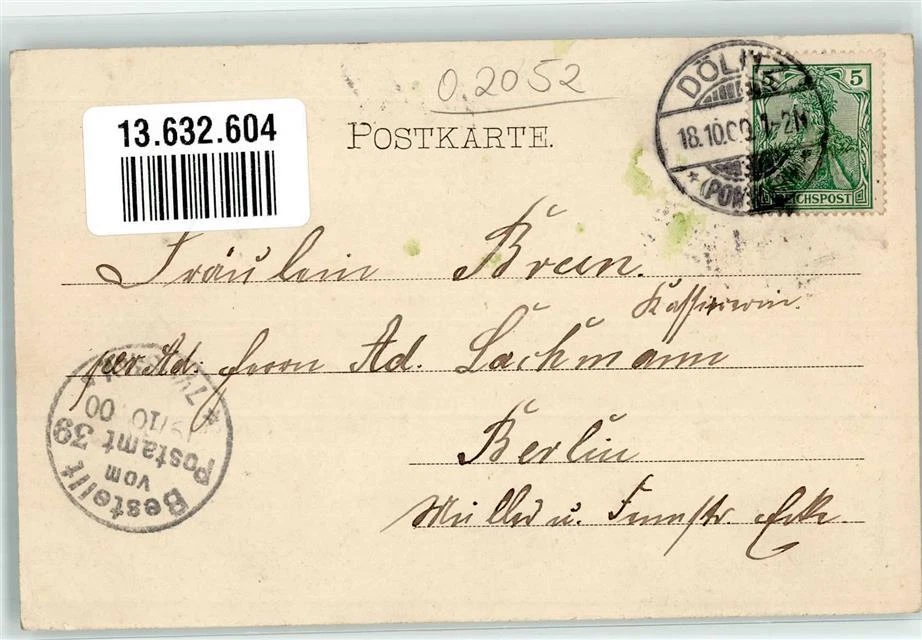 0.2052
13.632.604
POSTKARTE.
DÖLITZ
18.10.00 1-2N
* (POMMERN) *
5 5
REICHSPOST
Fräulein Breen.
Kassiererin.
per Ad. Herrn Ad. Lachmann
Berlin
Müller u. Ecke
Bestellt
vom
Postamt 39
/10 00